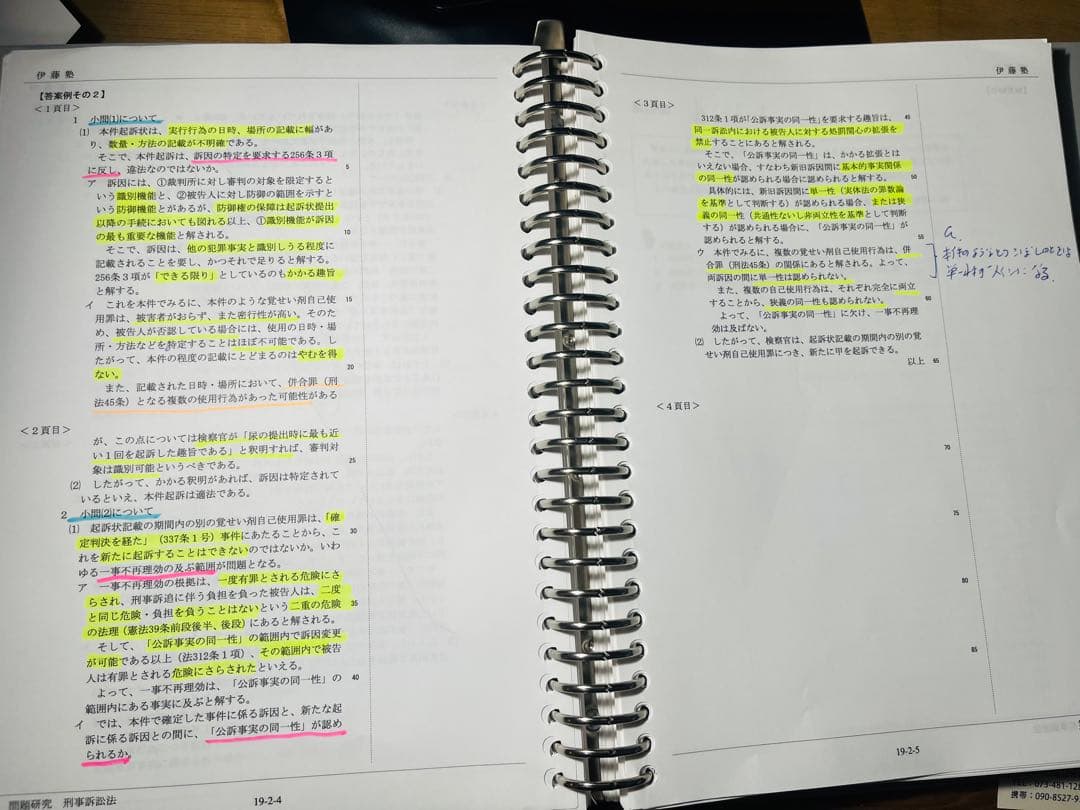 伊藤塾
【答案例その2】
<1頁目>
1 小問⑴について
⑴ 本件起訴状は、実行行為の日時、場所の記載に幅があ
り、数量・方法の記載が不明確である。
そこで、本件起訴は、訴因の特定を要求する256条3項
に反し、違法なのではないか。 5
ア 訴因には、①裁判所に対し審判の対象を限定すると
いう識別機能と、②被告人に対し防御の範囲を示すと
いう防御機能とがあるが、防御権の保障は起訴状提出
以降の手続においても図れる以上、①識別機能が訴因
の最も重要な機能と解される。 10
そこで、訴因は、他の犯罪事実と識別しうる程度に
記載されることを要し、かつそれで足りると解する。
256条3項が「できる限り」としているのもかかる趣旨
と解する。
イ これを本件でみるに、本件のような覚せい剤自己使 15
用罪は、被害者がおらず、また密行性が高い。そのた
め、被告人が否認している場合には、使用の日時・場
所・方法などを特定することはほぼ不可能である。し
たがって、本件の程度の記載にとどまるのはやむを得
ない。 20
また、記載された日時・場所において、併合罪(刑
法45条)となる複数の使用行為があった可能性がある
<2頁目>
が、この点については検察官が「尿の提出時に最も近
い1回を起訴した趣旨である」と釈明すれば、審判対
象は識別可能というべきである。 25
⑵ したがって、かかる釈明があれば、訴因は特定されて
いるといえ、本件起訴は適法である。
2 小問⑵について
⑴ 起訴状記載の期間内の別の覚せい剤自己使用罪は、「確
定判決を経た」(337条1号)事件にあたることから、こ 30
れを新たに起訴することはできないのではないか。いわ
ゆる一事不再理効の及ぶ範囲が問題となる。
ア 一事不再理効の根拠は、一度有罪とされる危険にさ
らされ、刑事訴追に伴う負担を負った被告人は、二度
と同じ危険・負担を負うことはないという二重の危険 35
の法理(憲法39条前段後半、後段)にあると解される。
そして、「公訴事実の同一性」の範囲内で訴因変更
が可能である以上(法312条1項)、その範囲内で被告
人は有罪とされる危険にさらされたといえる。
よって、一事不再理効は、「公訴事実の同一性」の 40
範囲内にある事実に及ぶと解する。
イ では、本件で確定した事件に係る訴因と、新たな起
訴に係る訴因との間に、「公訴事実の同一性」が認め
られるか。
問題研究 刑事訴訟法
19-2-4
伊藤塾
<3頁目>
312条1項が「公訴事実の同一性」を要求する趣旨は、 45
同一訴訟内における被告人に対する処罰関心の拡張を
禁止することにあると解される。
そこで、「公訴事実の同一性」は、かかる拡張とは
いえない場合、すなわち新旧訴因間に基本的事実関係
の同一性が認められる場合に認められると解する。 50
具体的には、新旧訴因間に単一性(実体法の罪数論
を基準として判断する)が認められる場合、または狭
義の同一性(共通性ないし非両立性を基準として判断
する)が認められる場合に、「公訴事実の同一性」が
認められると解する。 55
ウ 本件でみるに、複数の覚せい剤自己使用行為は、併
合罪(刑法45条)の関係にあると解される。よって、
両訴因の間に単一性は認められない。
また、複数の自己使用行為は、それぞれ完全に両立
することから、狭義の同一性も認められない。 60
よって、「公訴事実の同一性」に欠け、一事不再理
効は及ばない。
⑵ したがって、検察官は、起訴状記載の期間内の別の覚
せい剤自己使用罪につき、新たに甲を起訴できる。
以上 65
<4頁目>
70
75
80
85
19-2-5
携帯:090-8527-9